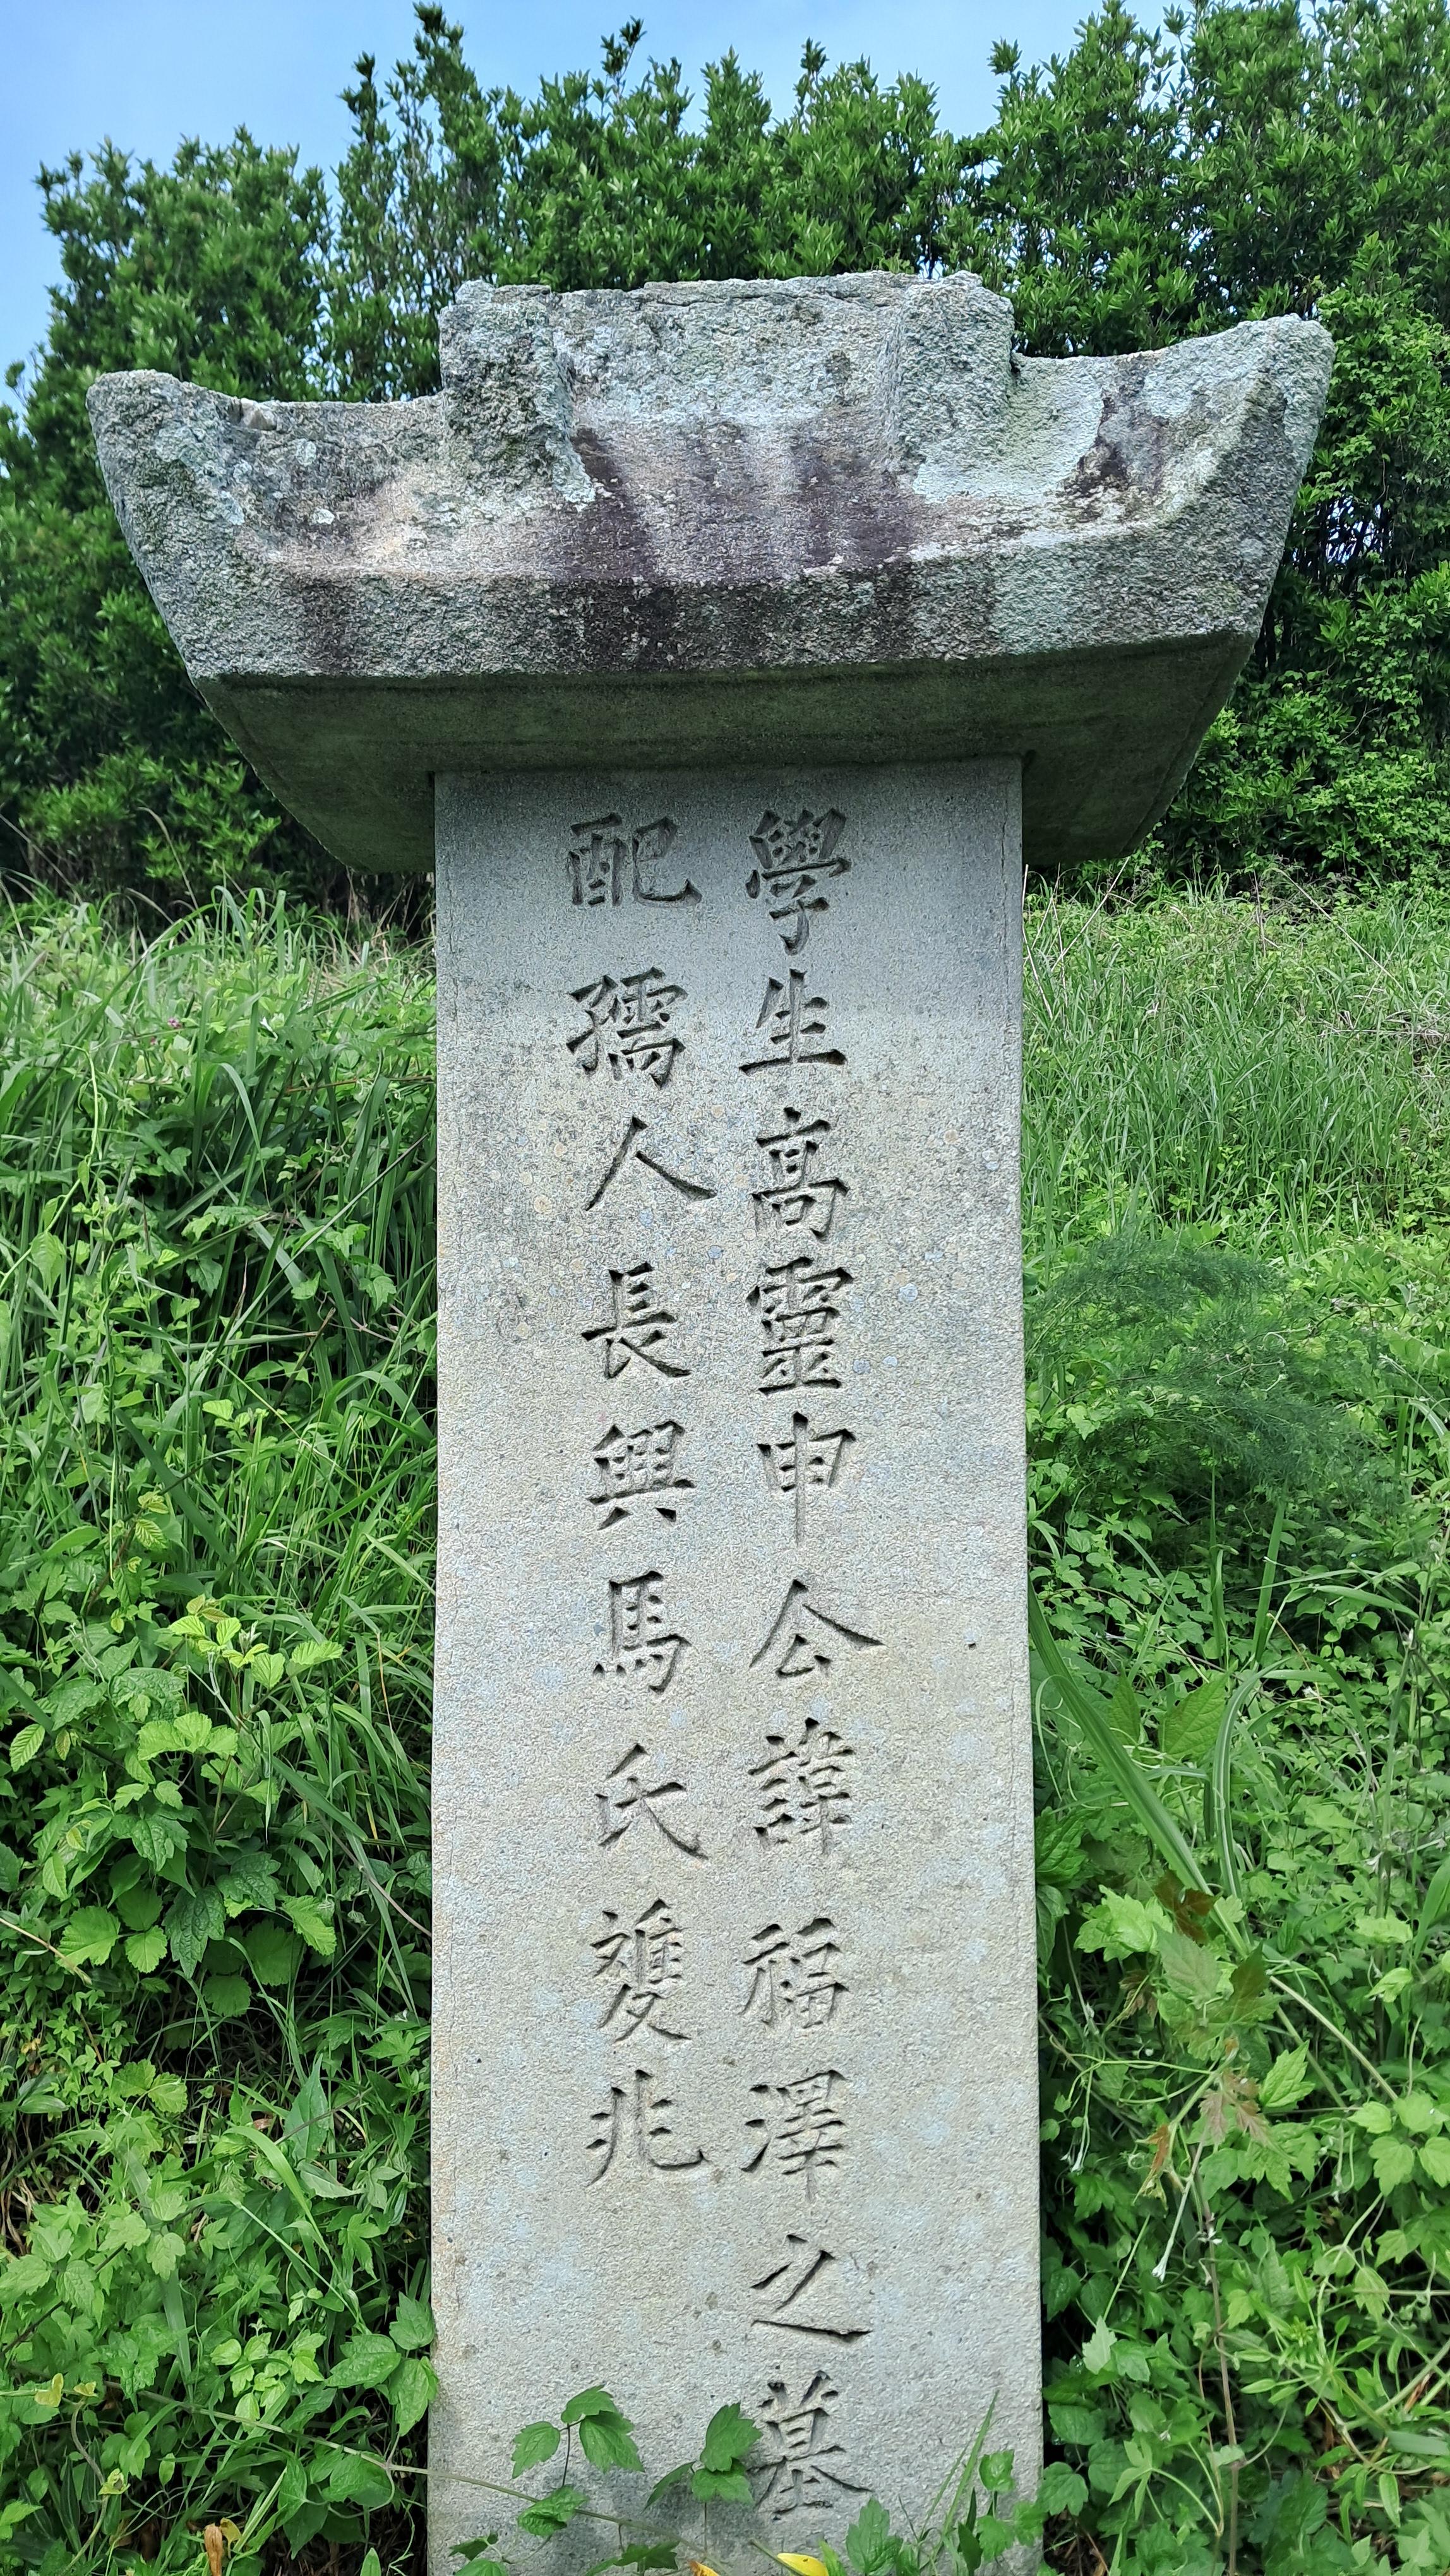 學生高靈申公諱福澤之墓
配孺人長興馬氏雙兆